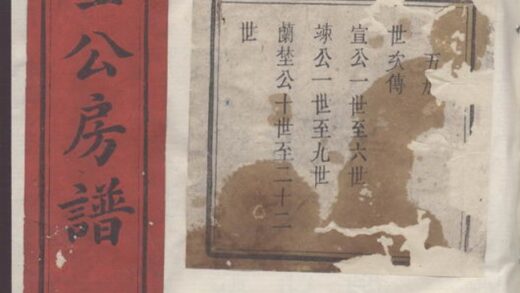 五
世次傳
宣公一世至六世
竦公一世至九世
蘭埜公十世至二十二
世
公房譜